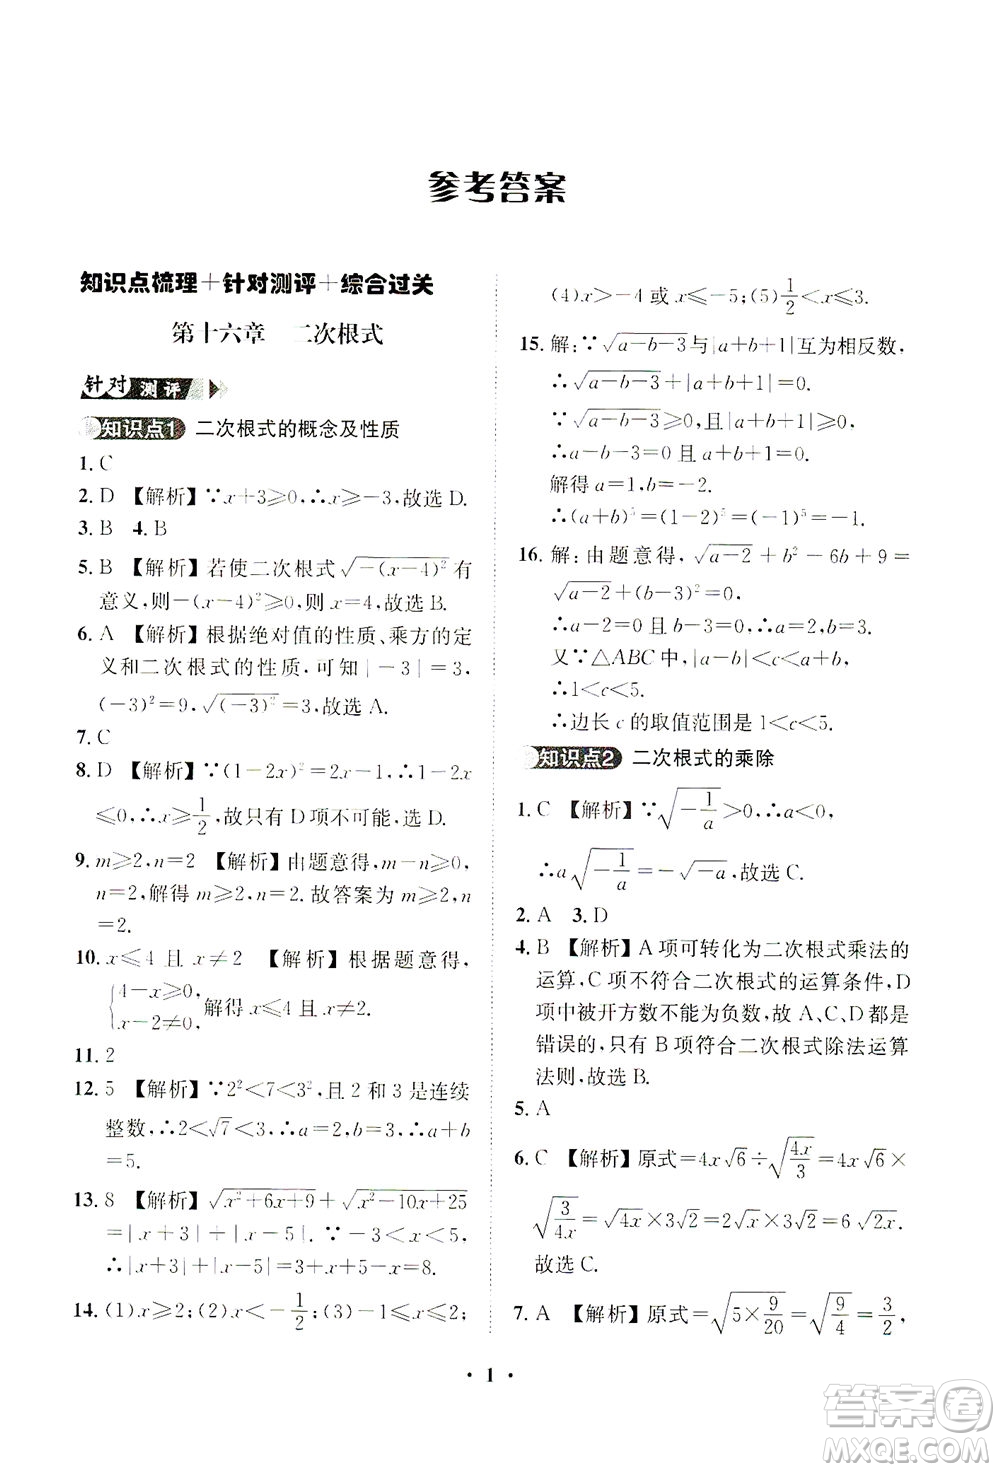 参考答案
知识点梳理＋针对测评＋综合过关
第十六章　二次根式
针对 测评
知识点1 二次根式的概念及性质
1. C
2. D 【解析】∵x＋3≥0,∴x≥－3,故选 D.
3. B 4. B
5. B 【解析】若使二次根式√(－(x－4)²) 有
意义,则－(x－4)²≥0,则 x＝4,故选 B.
6. A 【解析】根据绝对值的性质、乘方的定
义和二次根式的性质,可知|－3|＝3,
(－3)²＝9,√((－3)²)＝3,故选 A.
7. C
8. D 【解析】∵√((1－2x)²)＝|1－2x|,1－2x
≤0,∴x≥1/2,故只有 D 项不可能,选 D.
9. m≥2,n＝2 【解析】由题意得,m－n≥0,
n＝2,解得 m≥2,n＝2. 故答案为 m≥2,n＝
2.
10. x≤4 且 x≠2 【解析】根据题意得
{4－x≥0, x－2≠0, 解得 x≤4 且 x≠2.
11. 2
12. 5 【解析】∵2²＜7＜3²,且 2 和 3 是连续
整数,∴2＜√7＜3,∴a＝2,b＝3,∴a＋b
＝5.
13. 8 【解析】√(x²＋6x＋9)＋√(x²－10x＋25)
＝|x＋3|＋|x－5|. ∵－3≤x≤5,
∴|x＋3|＋|x－5|＝x＋3＋5－x＝8.
14. (1)x≥2;(2)x＜－1/2;(3)－1≤x≤2;
(4)x＞－4 或 x≤－5;(5)1/2＜x≤3.
15. 解:∵√(a－b－3)与|a＋b|互为相反数,
∴√(a－b－3)＋|a＋b|＝0.
∵√(a－b－3)≥0,|a＋b|≥0,
∴a－b－3＝0 且 a＋b＝0.
解得 a＝1,b＝－2.
∴(a＋b)⁵＝(1－2)⁵＝(－1)⁵＝－1.
16. 解:由题意得,√(a－2)＋b²－6b＋9＝
√(a－2)＋(b－3)²＝0.
∴a－2＝0,b－3＝0.
∴a＝2,b＝3.
又∵△ABC 中,|a－b|＜c＜a＋b,
∴1＜c＜5.
∴边长 c 的取值范围是 1＜c＜5.
知识点2 二次根式的乘除
1. C 【解析】∵√(－1/a)＞0,∴a＜0,
∴a√(－1/a)＝－√(－a),故选 C.
2. A 3. D
4. B 【解析】A 项可转化为二次根式乘法的
运算,C 项不符合二次根式的运算条件,D
项中被开方数不能为负数,故 A、C、D 都是
错误的,只有 B 项符合二次根式除法运算
法则,故选 B.
5. A
6. C 【解析】原式＝4x√6÷√(4x/3)＝4x√6×
√(3/4x)＝√(4x)×3√2＝2√x×3√2＝6√(2x).
故选 C.
7. A 【解析】原式＝√(5×9/20)＝√(9/4)＝3/2,
· 1 ·
答案圈
MXQE.COM